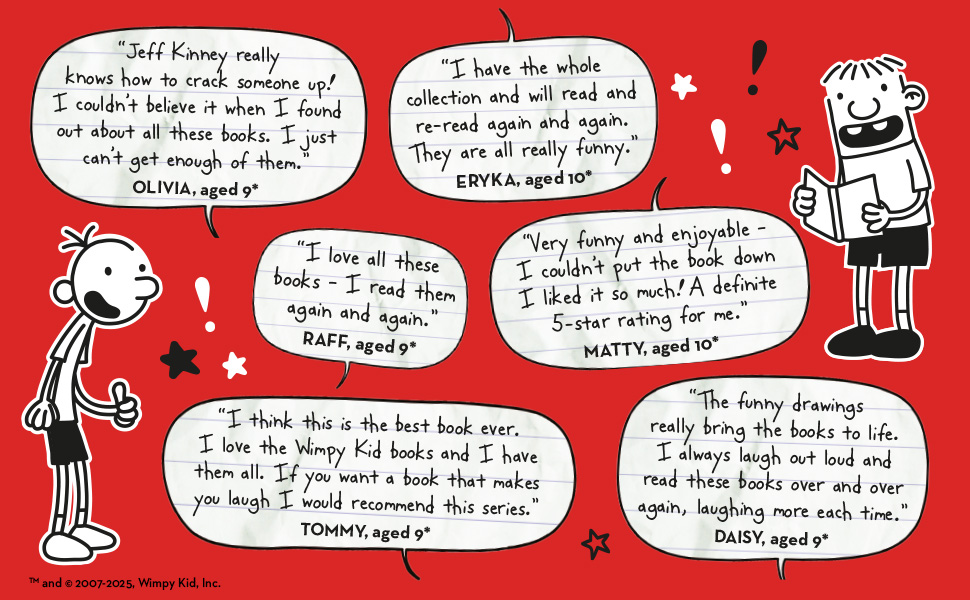 “Jeff Kinney really
knows how to crack someone up!
I couldn’t believe it when I found
out about all these books. I just
can’t get enough of them.”
OLIVIA, aged 9*
“I have the whole
collection and will read and
re-read again and again.
They are all really funny.”
ERYKA, aged 10*
“I love all these
books – I read them
again and again.”
RAFF, aged 9*
“Very funny and enjoyable –
I couldn’t put the book down
I liked it so much! A definite
5-star rating for me.”
MATTY, aged 10*
“I think this is the best book ever.
I love the Wimpy Kid books and I have
them all. If you want a book that makes
you laugh I would recommend this series.”
TOMMY, aged 9*
“The funny drawings
really bring the books to life.
I always laugh out loud and
read these books over and over
again, laughing more each time.”
DAISY, aged 9*
™ and © 2007-2025, Wimpy Kid, Inc.